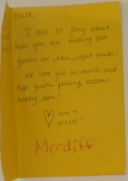 Kate,
I am so sorry about
how you are feeling but
you're in the right hands!
We love you so much and
hope you're feeling better
really soon!
♡ Love +
Merdiff